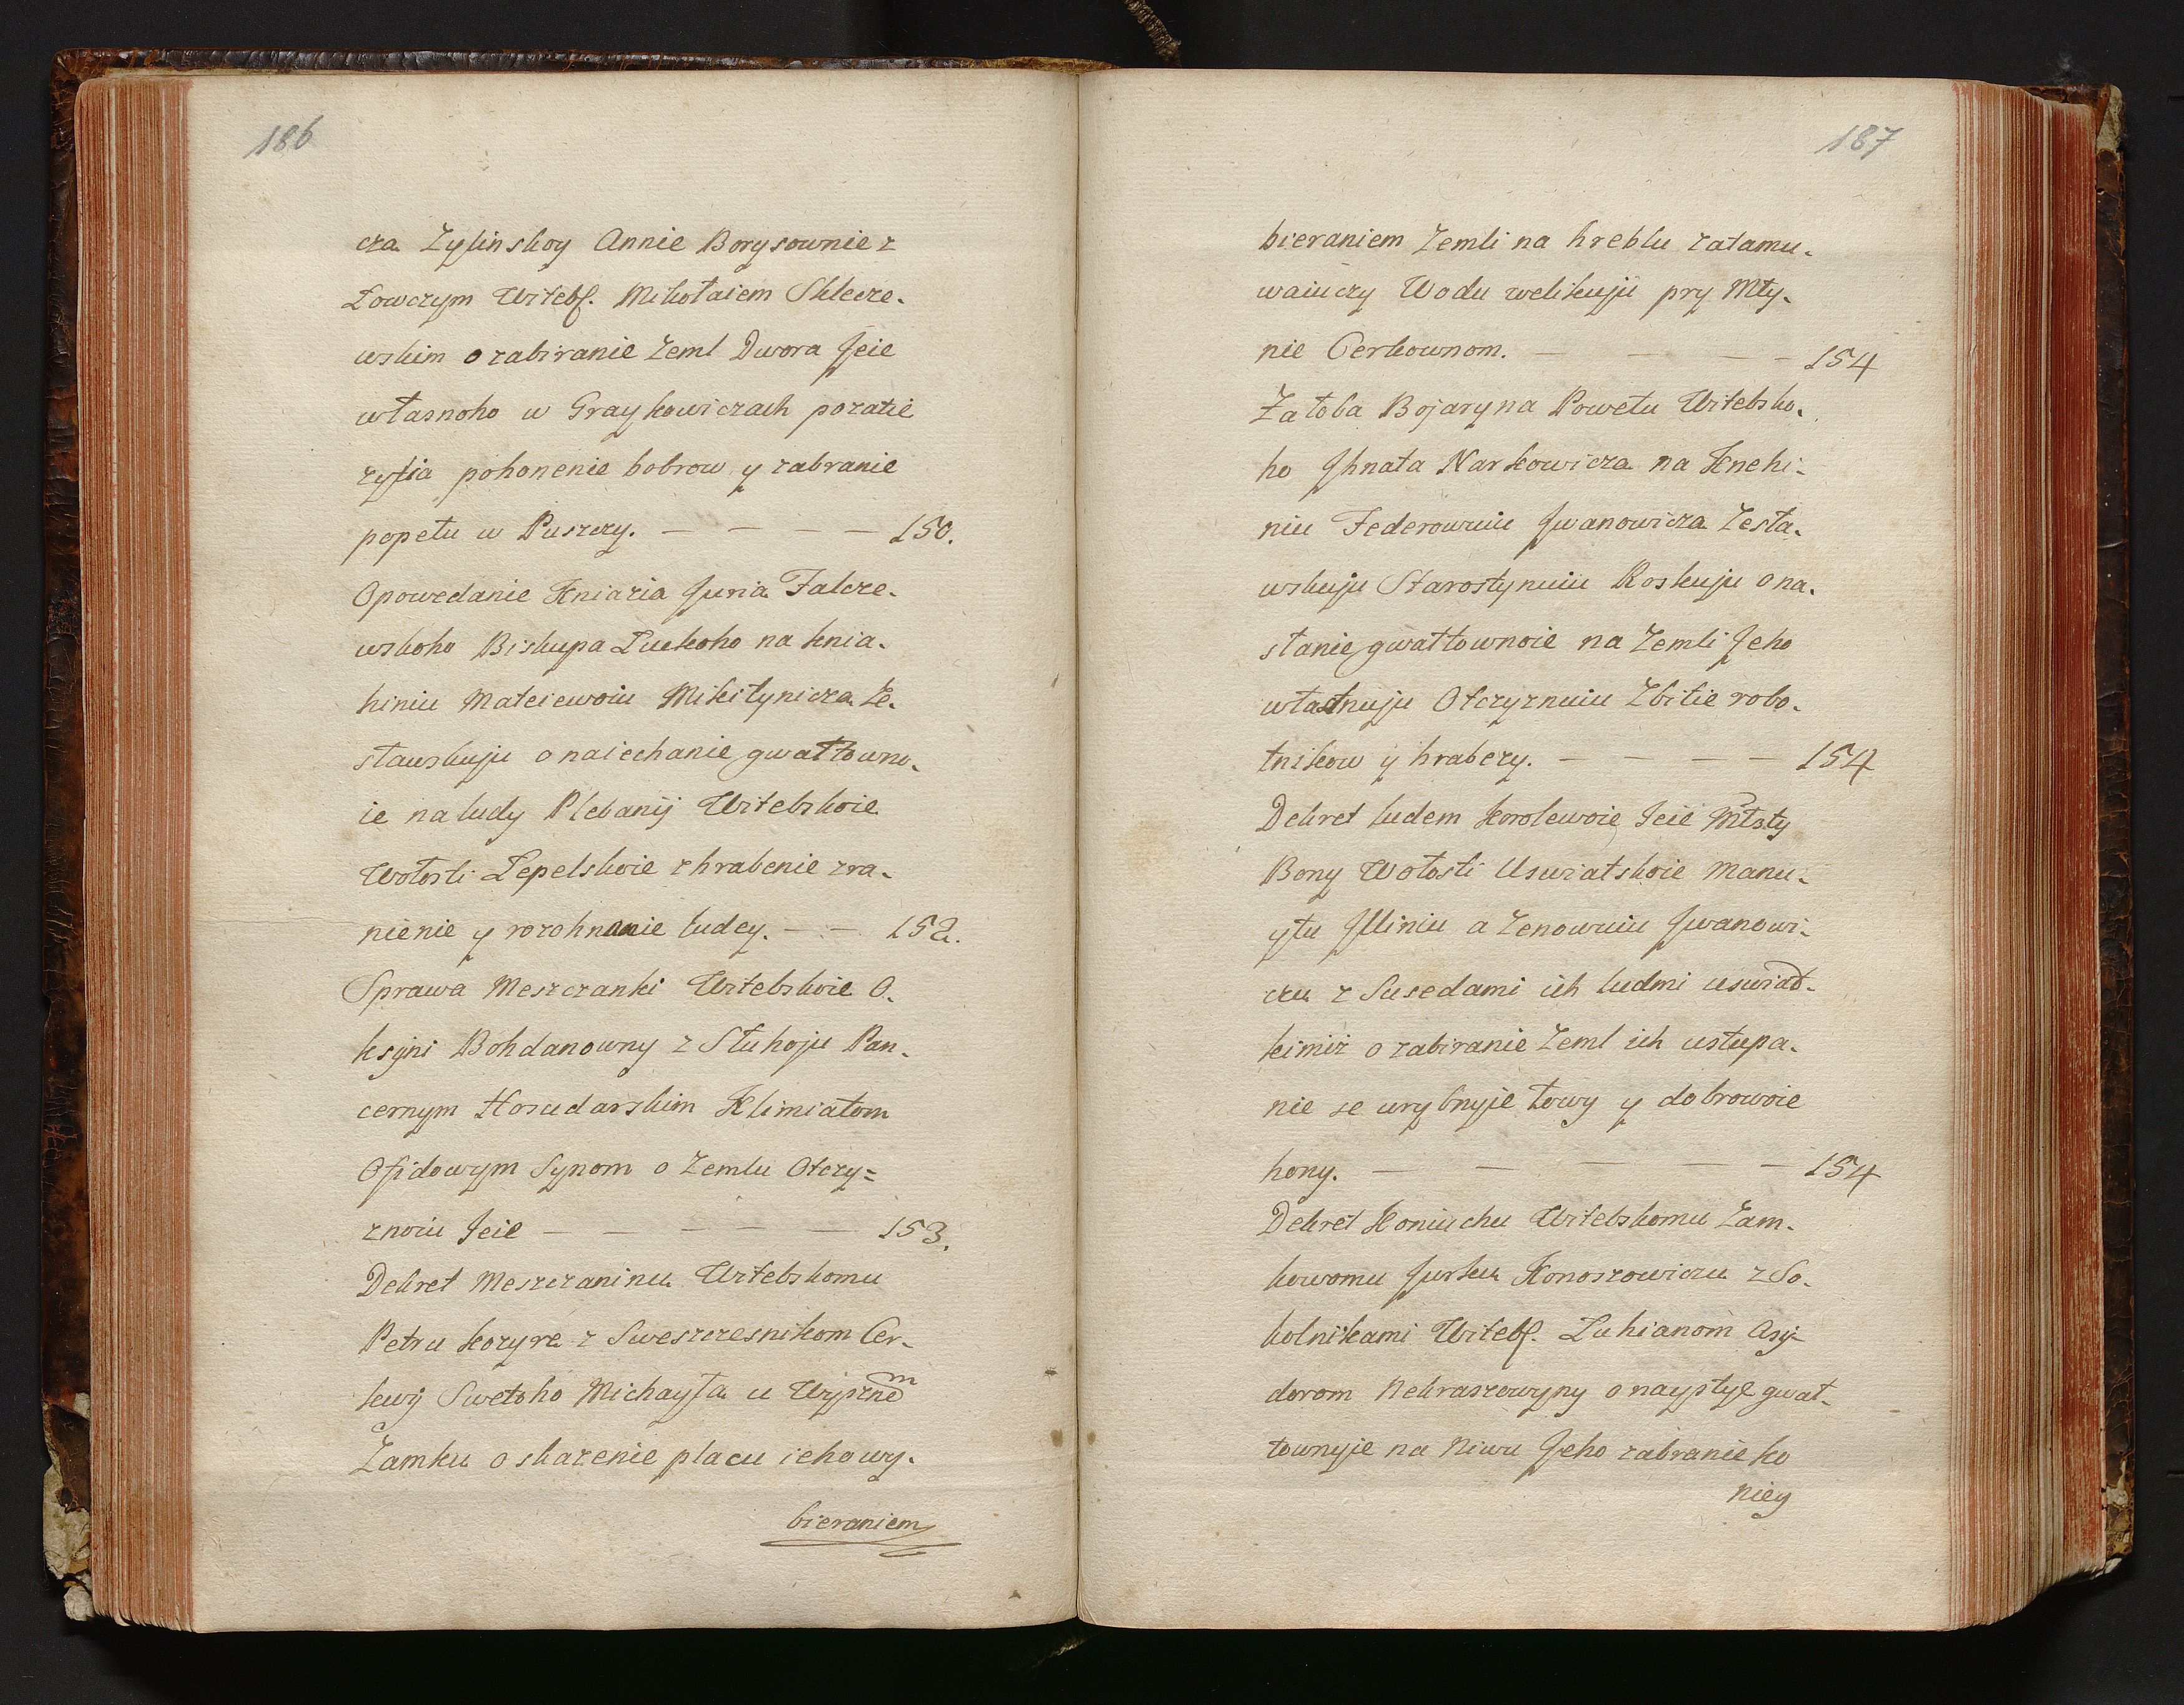 186
cza Zylinskoy Annie Borysownie z
Łowczym Witebs. Mikołaiem Sklecze-
wskim o zabiranie Zeml Dwora Jeie
własnoho w Graykowiczach pozatie
zyłia pohonenie bobrow y zabranie
popetu w Puszczy. — — — — 150.
Opowedanie Kniazia Juria Falcze-
wskoho Biskupa Łuckoho na knia-
hiniu Mateiewoiu Mikitynicza Ze-
sławskuju o naiechanie gwałtowno-
ie na ludy Plebanij Witebskoie
Wołosti Lepelskoie zhrabenie zra-
nienie y rozohnanie ludey. — — 152.
Sprawa Meszczanki Witebskoie O-
ksijni Bohdanowny z Słuhoju Pan-
cernym Hosudarskim Klimiatom
Ofidowym Synom o Zemlu Otczy=
znoiu Jeie — — — — — 153.
Dekret Meszczaninu Witebskomu
Petru kozyre z Sweszczesnikom Cer-
kwij Swetoho Michayła u Wyznem
Zamku o skazenie placu ieho wy-
bieraniem
187
bieraniem Zemli na hreblu zatamu-
waiuczy Wodu welikuju pry Mły-
nie Cerkownom. — — — — 154
Załoba Bojaryna Powetu Witebsko-
ho Jhnata Narkowicza na Knehi-
niu Federowuiu Jwanowicza Zesła-
wskuju Starostynuiu Roskuju o na-
słanie gwałtownoie na Zemli Jeho
własnuju Otczyznuiu Zbitie robo-
tnikow y hrabezy. — — — — 154
Dekret ludem Korolewoie Jeie Młsty
Bony Wołosti Uswiatskoie Manu-
yłu Jlliniu a Zenowuiu Jwanowi-
czu z Susedami ich ludmi uswiad-
kimiż o zabiranie Zeml ich ustupa-
nie se w rybnyje łowy y dobrowoie
hony. — — — — — 154
Dekret Koniuchu Witebskomu Zam-
kowomu Jurku Konoszowiczu z So-
kolnikami Witebs. Łuhianom Asij-
dorom Nekraszowyny o nayztye gwał-
townyje na Niwu Jeho zabranie ko
niey